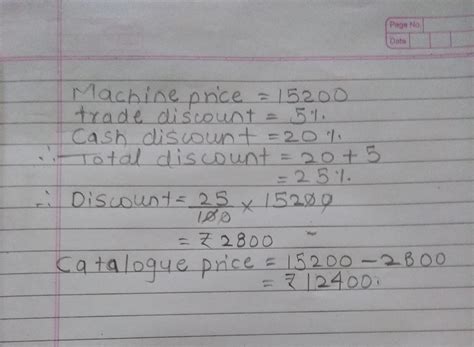 Page No.
Date
Machine price = 15200
trade discount = 5%
Cash discount = 20%
∴ Total discount = 20 + 5
= 25%
∴ Discount = 25/100 × 15200
= ₹ 2800
Catalogue price = 15200 - 2800
= ₹ 12400.